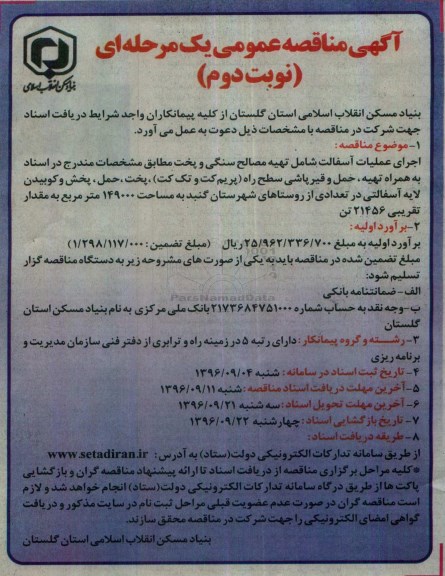 آگهی مناقصه عمومی یک مرحله ای
(نوبت دوم)
بنیاد مسکن انقلاب اسلامی
بنیاد مسکن انقلاب اسلامی استان گلستان از کلیه پیمانکاران واجد شرایط دریافت اسناد
جهت شرکت در مناقصه با مشخصات ذیل دعوت به عمل می آورد.
۱-موضوع مناقصه:
اجرای عملیات آسفالت شامل تهیه مصالح سنگی و پخت مطابق مشخصات مندرج در اسناد
به همراه تهیه ، حمل و قیرپاشی سطح راه (پریم کت و تک کت) ، پخت ، حمل ، پخش و کوبیدن
لایه آسفالتی در تعدادی از روستاهای شهرستان گنبد به مساحت ۱۴۹۰۰۰ متر مربع به مقدار
تقریبی ۲۱۴۵۶ تن
۲-برآورد اولیه:
برآورد اولیه به مبلغ ۲۵/۹۶۲/۳۳۶/۷۰۰ ریال (مبلغ تضمین : ۱/۲۹۸/۱۱۷/۰۰۰)
مبلغ تضمین شده در مناقصه باید به یکی از صورت های مشروحه زیر به دستگاه مناقصه گزار
تسلیم شود:
الف- ضمانتنامه بانکی
ب-وجه نقد به حساب شماره ۲۱۷۳۶۸۴۷۵۱۰۰۰ بانک ملی مرکزی به نام بنیاد مسکن استان
گلستان
۳- رشته و گروه پیمانکار : دارای رتبه ۵ در زمینه راه و ترابری از دفتر فنی سازمان مدیریت و
برنامه ریزی
۴- تاریخ ثبت اسناد در سامانه : شنبه ۱۳۹۶/۰۹/۰۴
۵-آخرین مهلت دریافت اسناد مناقصه : شنبه ۱۳۹۶/۰۹/۱۱
۶-آخرین مهلت تحویل اسناد : سه شنبه ۱۳۹۶/۰۹/۲۱
۷- تاریخ بازگشایی اسناد : چهارشنبه ۱۳۹۶/۰۹/۲۲
۸-طریقه دریافت اسناد:
از طریق سامانه تدارکات الکترونیکی دولت(ستاد) به آدرس: www.setadiran.ir
*کلیه مراحل برگزاری مناقصه از دریافت اسناد تا ارائه پیشنهاد مناقصه گران و بازگشایی
پاکت ها از طریق درگاه سامانه تدارکات الکترونیکی دولت(ستاد) انجام خواهد شد و لازم
است مناقصه گران در صورت عدم عضویت قبلی مراحل ثبت نام در سایت مذکور و دریافت
گواهی امضای الکترونیکی را جهت شرکت در مناقصه محقق سازند.
بنیاد مسکن انقلاب اسلامی استان گلستان
ParsNamadData